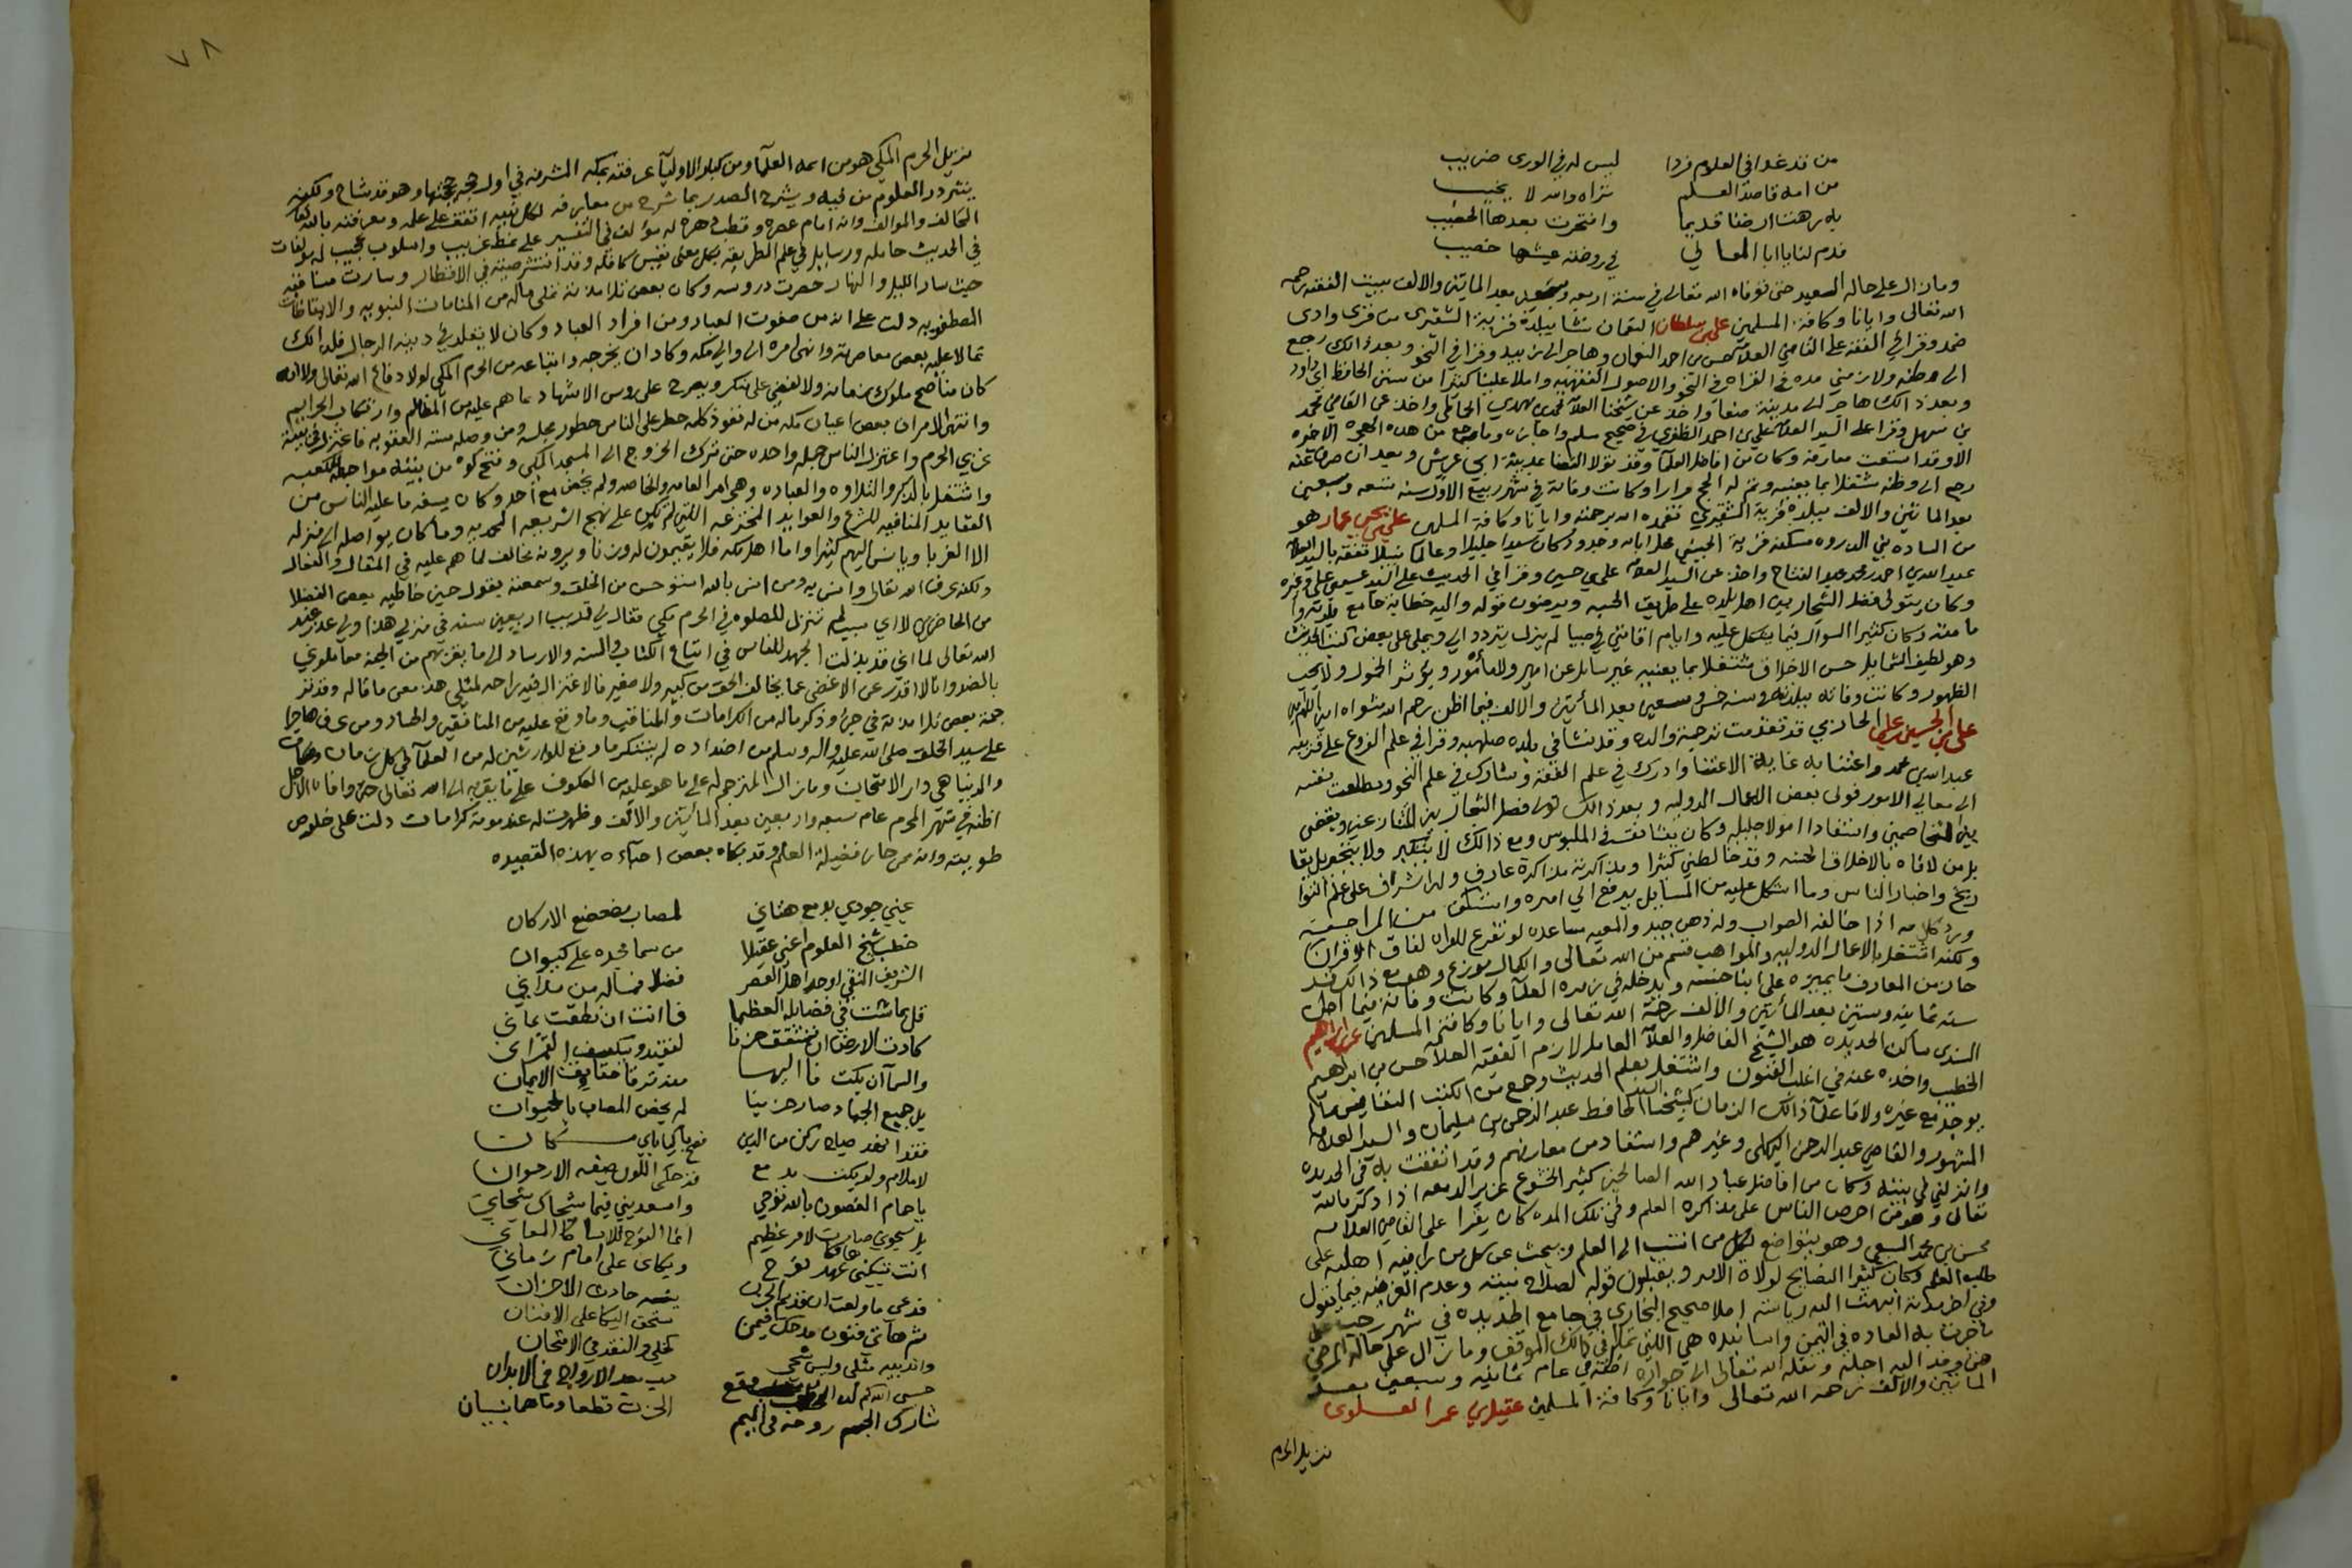 من قد غدا في العلوم فردا ليس له في الورى ضريب
من امه قاصدا لعلم تراه والله لا يخيب
به زهت ارضنا قديما وافتخرت بعدها
قدم لنا يا ابا المعالي في روضة عيشها خصيب
وما زال على حاله السعيد حتى توفاه الله تعالى في سنة اربعه بعد المايتين والالف ببيت الفقيه رحمه
الله تعالى وايانا وكافة المسلمين علي بن سلطان النعمان نشا ببلده قرية الشقيري من قرى وادي
ضمد وقرا في الفقه على القاضي العلامة حسن بن احمد النعمان وهاجر الى زبيد وقرا في النحو وبعد ذالك رجع
الى وطنه ولازمني مده في القراه في النحو والاصول الفقهيه واملا علينا كثيرا من سنن الحافظ ابي داود
وبعد ذالك هاجر الى مدينة صنعا واخذ عن شيخنا العلامة محمد بن مهدي الحماطي واخذ عن القاضي محمد
بن سهيل وقرا على السيد العلامة علي بن احمد الظفري في صحيح مسلم واجازه وما رجع من هذه الهجره الاخيره
الا وقد اتسعت معارفه وكان من افاضل العلما وقد تولا القضا بمدينة ابي عريش وبعد ان صرف عنه
رجع الى وطنه مشتغلا بما يعنيه وتم له الحج مرارا وكانت وفاته في شهر ربيع الاول سنة تسعه وسبعين
بعد المائتين والالف ببلده قرية الشقيري تغمده الله برحمته وايانا وكافة المسلمين علي بن يحيى عمار هو
من الساده بني الدروه مسكنه قرية محل ابايه وجدوده وكان سيدا جليلا وعالما نبيلا تفقه بالسيد العلامة
عبد الله بن احمد بن محمد عبد الفتاح واخذ عن السيد العلامة علي بن حسين وقرا في الحديث على السيد عيسى بن علي وغيره
وكان يتولى فصل الشجار بين اهل بلده على طريق الحسبه ويرضون قوله واليه خطابة جامع بلدته
ما مته وكان كثير السوال فيما يشكل عليه وايام اقامتي في صبيا لم يزل يتردد الي ويملي علي بعض كتب الحديث
وهو لطيف الشمايل حسن الاخلاق مشتغلا بما يعنيه غير سايل عن امير ولا مأمور ويؤثر الخمول ولا يحب
الظهور وكانت وفاته ببلدته سنة خمس وسبعين بعد المأيتين والالف فيما اظن رحم الله مثواه امين اللهم امين
علي بن الحسين بن علي الحازمي قد تقدمت ترجمة والده وقد نشا في بلده صلهبه وقرا في علم الفروع على قريبه
عبد الله بن محمد واعتنا به غاية الاعتنا وادرك في علم الفقه وشارك في علم النحو وتطلعت نفسه
الى معالي الامور فولى بعض الاعمال الدوليه وبعد ذالك تولى فصل الشجار بين المتنازعين ويقضي
بين المتخاصمين واستفاد اموالا جليله وكان يتانق في الملبوس ومع ذالك لا يتكبر ولا يتجبر بل يقا
بل من لاقاه بالاخلاق الحسنه وقد خالطني كثيرا وذاكرته مذاكرة عارف وله اشراف على علم التوا
ريخ واخبار الناس وما اشكل عليه من المسايل يدفع الي امره واستنكف من المراجعه
ويرد كلامه اذا خالف الصواب وله ذهن جيد والمعيه مساعده لو تفرغ للقراه لفاق الاقران
ولكنه اشتغل بالاعمال الدوليه والمواهب قسم من الله تعالى والكمال موزع وهو مع ذالك قد
حاز من المعارف ما يميزه على ابنا جنسه ويدخله في زمرة العلما وكانت وفاته فيما اظن
سنة ثمانيه وستين بعد المأيتين والالف رحمة الله تعالى وايانا وكافة المسلمين علي بن ابراهيم
السندي ساكن الحديده هو الشيخ الفاضل والعلامة العامل لازم الفقيه العلامة حسن بن ابراهيم
الخطيب واخذ عنه في اغلب الفنون واشتغل بعلم الحديث وجمع من الكتب النفايس ما لم
يوجد مع غيره ولاقا علما ذالك الزمان كشيخنا السيد الحافظ عبد الرحمن بن سليمان والسيد العلامه
المشهور والقاضي عبد الرحمن البهكلي وغيرهم واستفاد من معارفهم وقد اتفقت به في الحديده
وانزلني في بيته وكان من افاضل عباد الله الصالحين كثير الخشوع غزير الدمعه اذا ذكر بالله
تعالى وهو من احرص الناس على مذاكرة العلم وفي تلك المده كان يقرا على القاضي العلامه
محسن بن محمد السبعي وهو يتواضع لكل من انتسب الى العلم ويبحث عن كل من راى فيه اهليه على
طلب العلم وكان كثير النصايح لولاة الامر ويقبلون قوله لصلاح نيته وعدم الغرض فيما يقول
وفي اخر مدته انتهت اليه رياسة املا صحيح البخاري في جامع الحديده في شهر رجب على
ما جرت به العاده في اليمن واسانيده هي اللتي تملا في ذالك الموقف وما زال على حاله المرضي
حتى وفد اليه اجله ونقله الله تعالى الى جواره اظنه في عام ثمانيه وسبعين بعد
المائتين والالف رحمه الله تعالى وايانا وكافة المسلمين عقيل بن عمر العلوي
نزيل الحرم
٧٨
نزيل الحرم المكي هو من ائمه العلما ومن كبار الاوليآ عرفته بمكه المشرفه في اول حجه حججتها وهو قد شاخ ولكنه
ينثر درر العلوم من فيه ويشرح الصدر بما شرح من معارفه لكل نبيه اتفق على علمه ومعرفته بالله تعالى
المخالف والموالف وانه امام عصره وقطب دهره له مؤلف في التفسير على نمط غريب واسلوب عجيب له مؤلفات
في الحديث حامله ورسايل في علم الطريقه بكل معنى نفيس كافله وقد انتشر صيته في الاقطار وسارت مناقبه
حيث سار الليل والنهار حضرت دروسه وكان بعض تلامذته تملى ماله من المنامات النبويه والايقاظات
المصطفويه دلت على انه من صفوت العباد ومن افراد العباد وكان لا يقلد في دينه الرجال فلذالك
تمالا عليه بعض معاصريه وانهى امره الى والي مكه وكاد ان يخرجه واتباعه من الحرم المكي لولا دفاع الله تعالى ولانه
كان يناصح ملوك زمانه ولا يغضي على منكر ويصرح على روس الاشهاد بما هم عليه من المظالم وارتكاب الجرايم
وانتهى الامر ان بعض اعيان مكه ممن له نفوذ كلمه حظر على الناس حضور مجلسه ومن وصله مسته العقوبه فاعتزل في بيته
غربي الحرم واعتزل الناس جمله واحده حتى ترك الخروج الى المسجد المكي وفتح كوه من بيته مواجهه للكعبه
واشتغل بالذكر والتلاوه والعباده وهجر امر العامه والخاصه ولم يخض مع احد وكان يسفه ما عليه الناس من
العقايد المنافيه للشرع والعوايد المخترعه اللتي لم تكن على نهج الشريعه المحمديه وما كان يواصله الى منزله
الا الغربا ويانس اليهم كثيرا واما اهل مكه فلا يقيمون له وزنا ويرونه مخالف لما هم عليه في المقال والفعال
ولكنه عرف الله تعالى وانس به ومن انس بالله استوحش من الخلق وسمعته يقول حين خاطبه بعض الفضلا
من الحاضرين لاي سبب لم تنزل للصلوه في الحرم مكي فقال لي قريب اربعين سنه في منزلي هذا ولي عذر عند
الله تعالى لما اني قد بذلت الجهد للناس في اتباع الكتاب والسنه والارشاد الى ما يقربهم من الجنه فعاملوني
بالضد وانا لا اقدر عن الاغضى عما يخالف الحق من كبير ولا صغير فالاعتزال فيه راحه لمثلي هذا معنى ما قاله وقد تر
جمه بعض تلامذته في جزء وذكر ماله من الكرامات والمناقب وما وقع عليه من المنافقين والحساد ومن عرف ما جرا
على سيد الخلق صلى الله عليه واله وسلم من اضداده لم يستنكر ما وقع للوارثين له من العلما في كل زمان ومكان
والدنيا هي دار الامتحان وما زال المترجم له على ما هو عليه من العكوف على ما يقربه الى الله تعالى حتى وافاه الاجل
اظنه في شهر المحرم عام سبعه واربعين بعد المأيتين والالف وظهرت له عند موته كرامات دلت على خلوص
طويته وانه ممن حاز فضيلة العلم وقد بكاه بعض احبآءه بهذه القصيده
عيني جودي بدمع هتاني لمصاب مضعضع الاركان
خطب شيخ العلوم اعني عقيلا من سما مجده على كيوان
الشريف التقي اوحد اهل العصر فضلا فماله من مداني
قل بما شئت في فضايله العظما فانت ان نطقت يماني
كادت الارض ان تتشقق حزنا لفقيد ويكسف القمران
والسما ان بكت فا اليها
بل جميع الجماد صار حزينا لم يخص المصاب بالحيوان
فقدنا بفقد صبا ركن من الدين
لا ملام ولو بكيت بدمع قد حكى اللون صبغه الارجوان
يا حمام الغصون بالله نوحي واسعديني فيما شجاك شجاني
بل شجوي صارت لامر عظيم انما النوح للاسا كالمعاني
انت تبكين عهد نوح وبكاى على امام زماني
فدعي ما ولعت ان قديم الحزن حادث الاحزان
ثم هاتي فنون مدحك فيمن يستحق البكا على الافنان
واندبيه مثلي وليس شجي
شارك الجسم روحه في اليم الحزن قطعا وما هما سيان